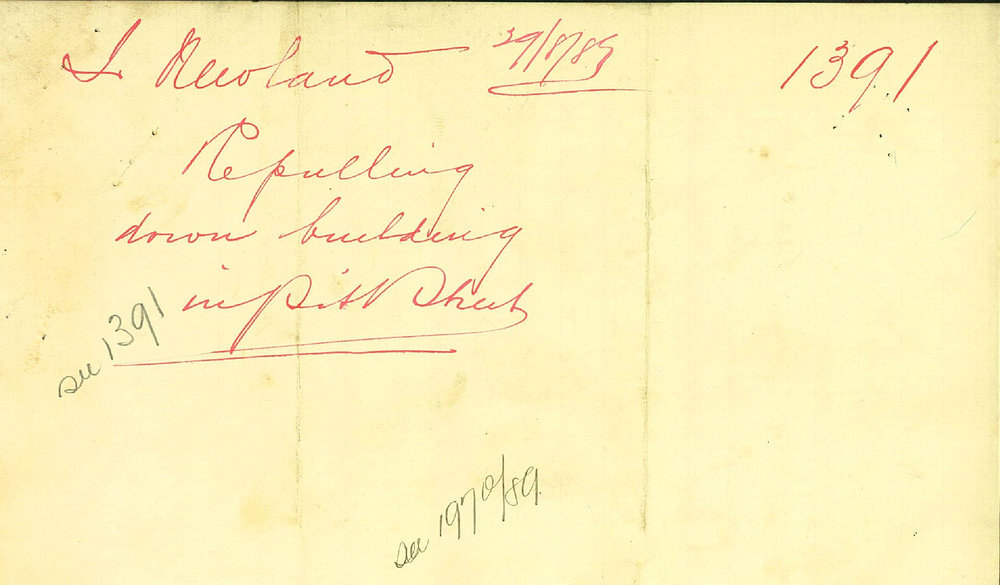 J. Newland 29/8/89 1391
Re pulling
down building
in Pitt Street
see 1391
see 1970/89